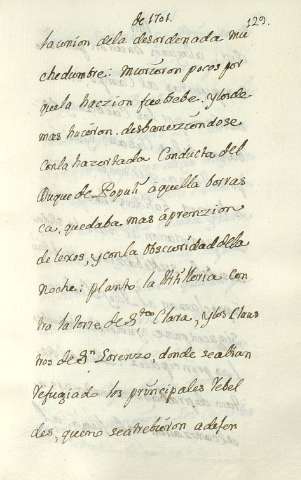 de 1701.
129.
la union dela desordenada mu
chedumbre: murieron pocos por
que la haczion fue brebe, y los de
mas huieron. desbaneziendose
con la hazertada Conducta del
Duque de Populi aquella borras
ca, quedaba mas aprenzion
de lexos, y con la obscuridad dela
noche: planto la Artilleria con
tra la torre de Sta. Clara, y los Claus
tros de Sn. Lorenzo, donde se abian
refugiado los prinzipales rebel
des, que no se atrebieron a defen